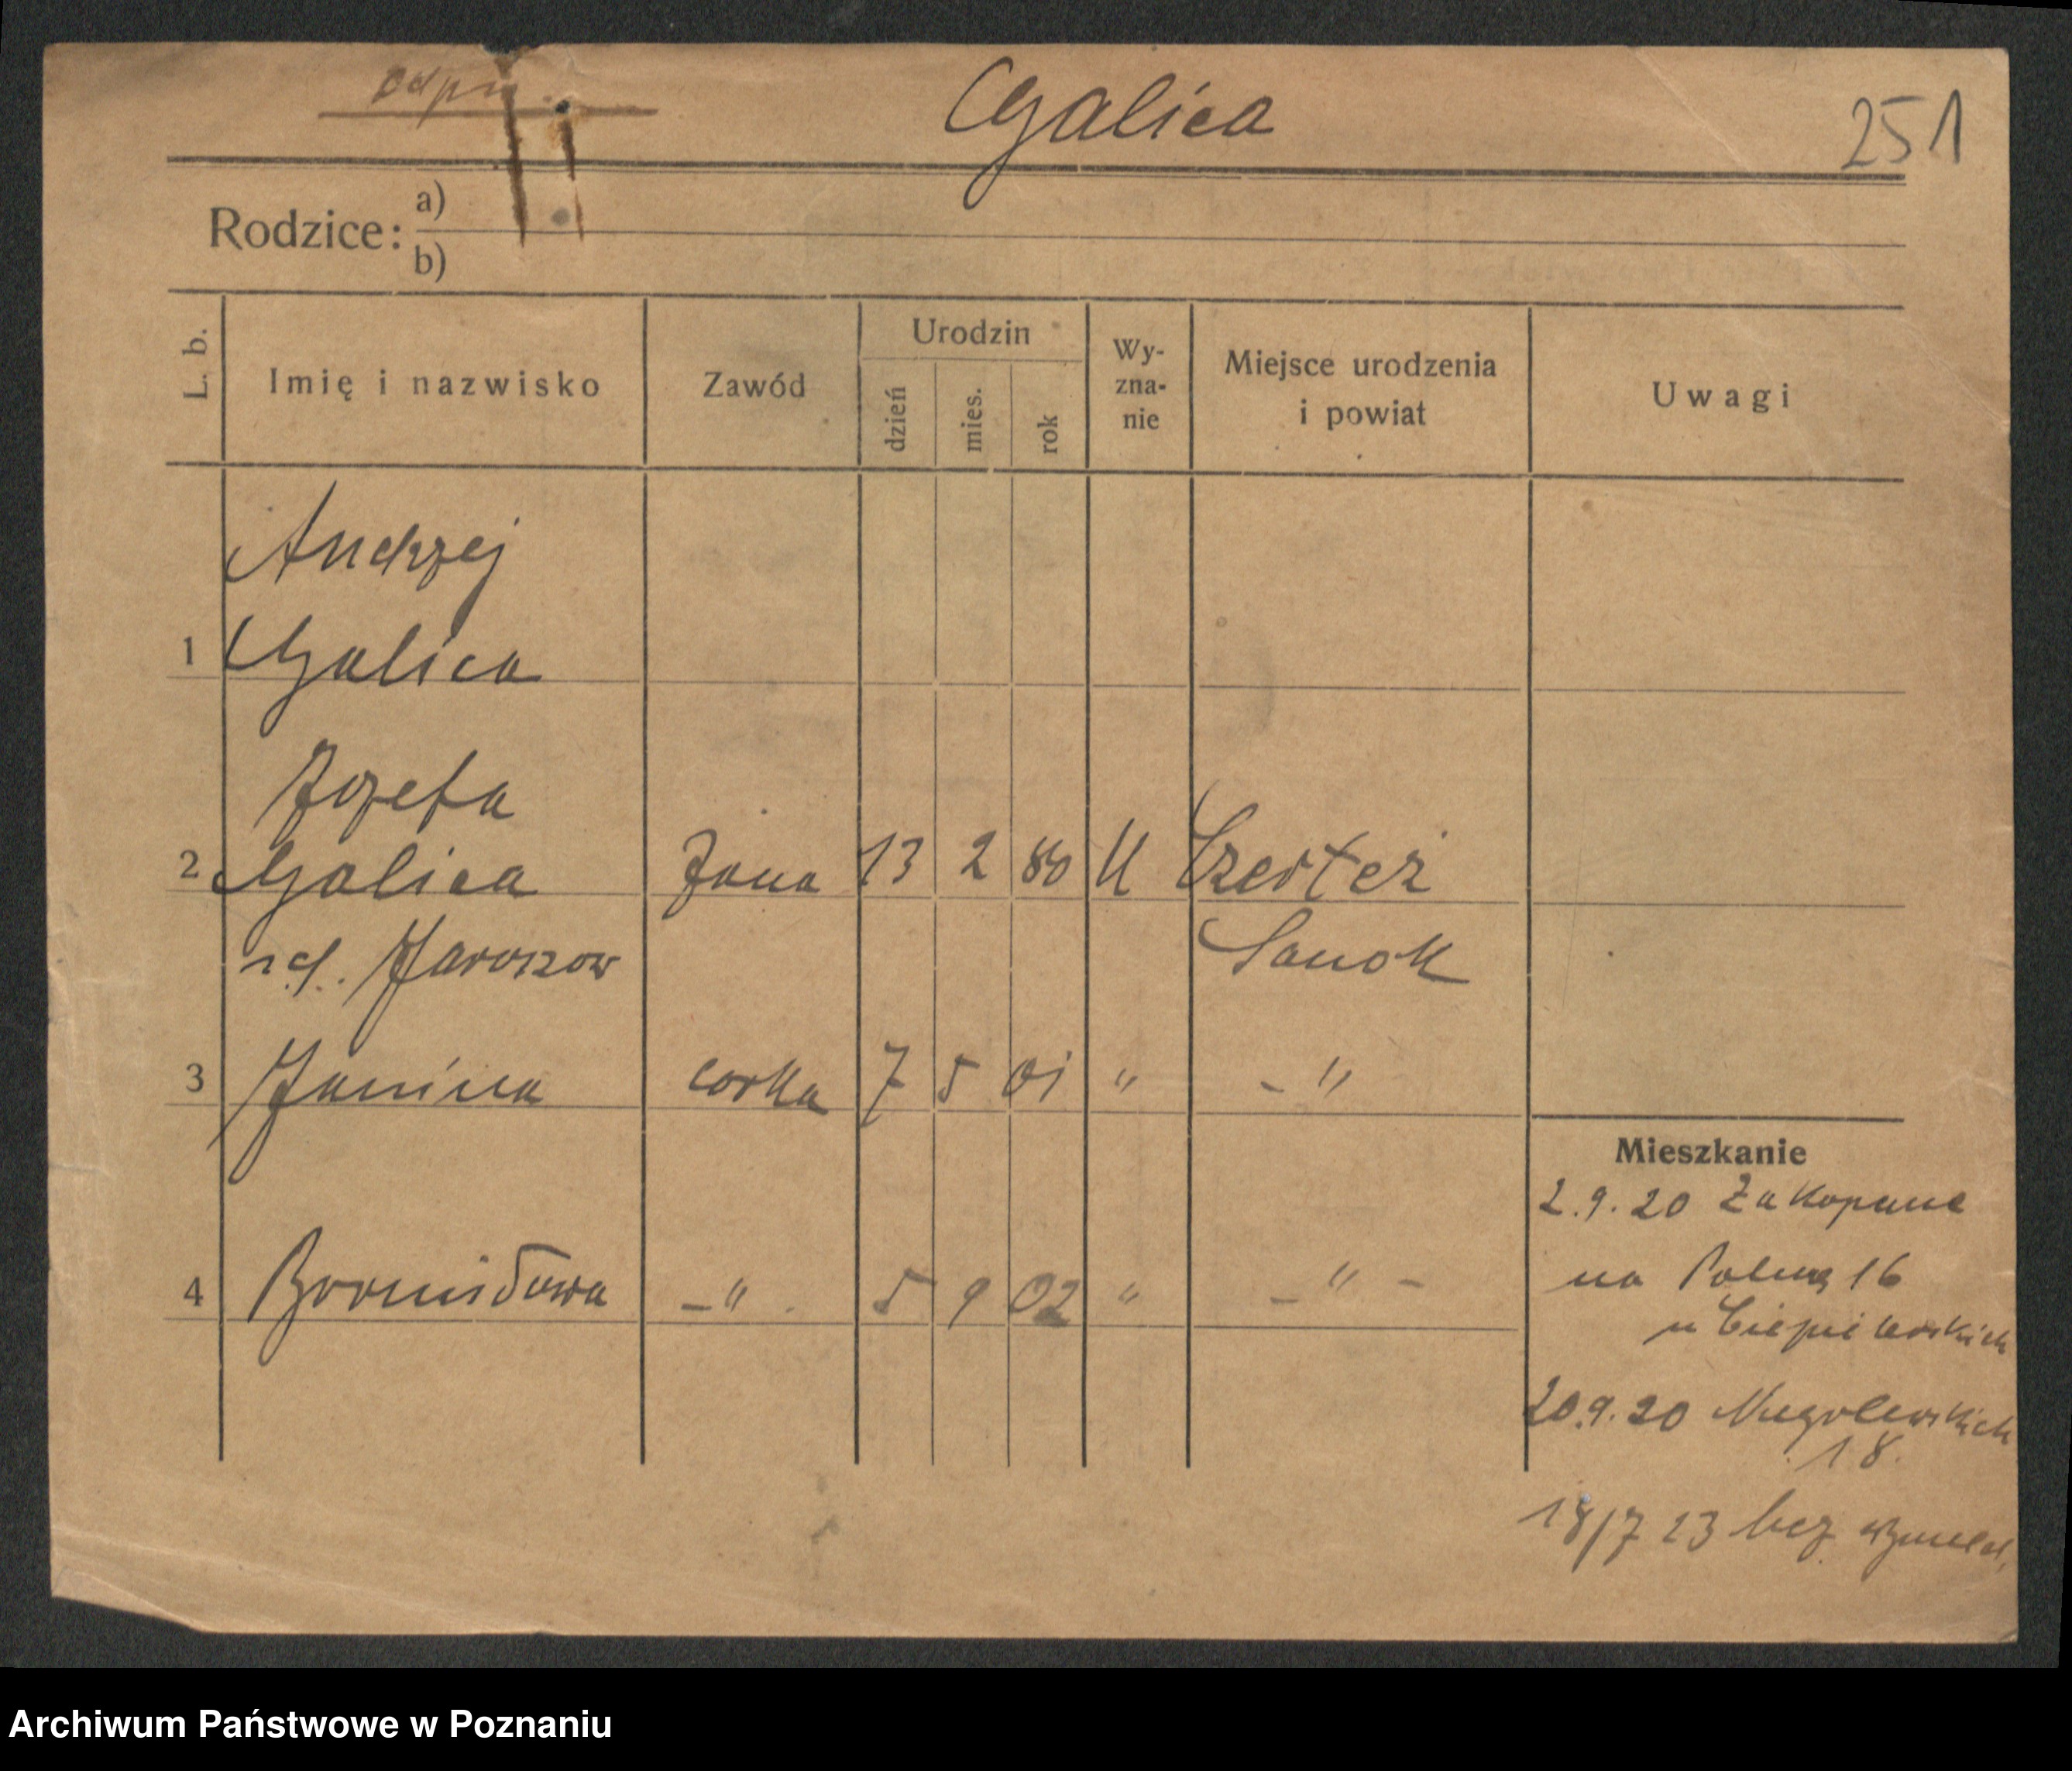 Galica
251
Rodzice: a)
b)
L. b.
Imię i nazwisko
Zawód
Urodzin
dzień
mies.
rok
Wy-
zna-
nie
Miejsce urodzenia
i powiat
Uwagi
Andrzej
1 Galica
Józefa
2 Galica Żona 13 2 80 U Czerteż
Jaroszow Sanok
3 Janina corka 7 5 01 " - "
4 Bronisława - " . 5 9 02 " - " -
Mieszkanie
2.9.20 Zakopane
na 16
u
20.9.20 Niegolewskich
18.
18/7 23 bez wymeld.
Archiwum Państwowe w Poznaniu